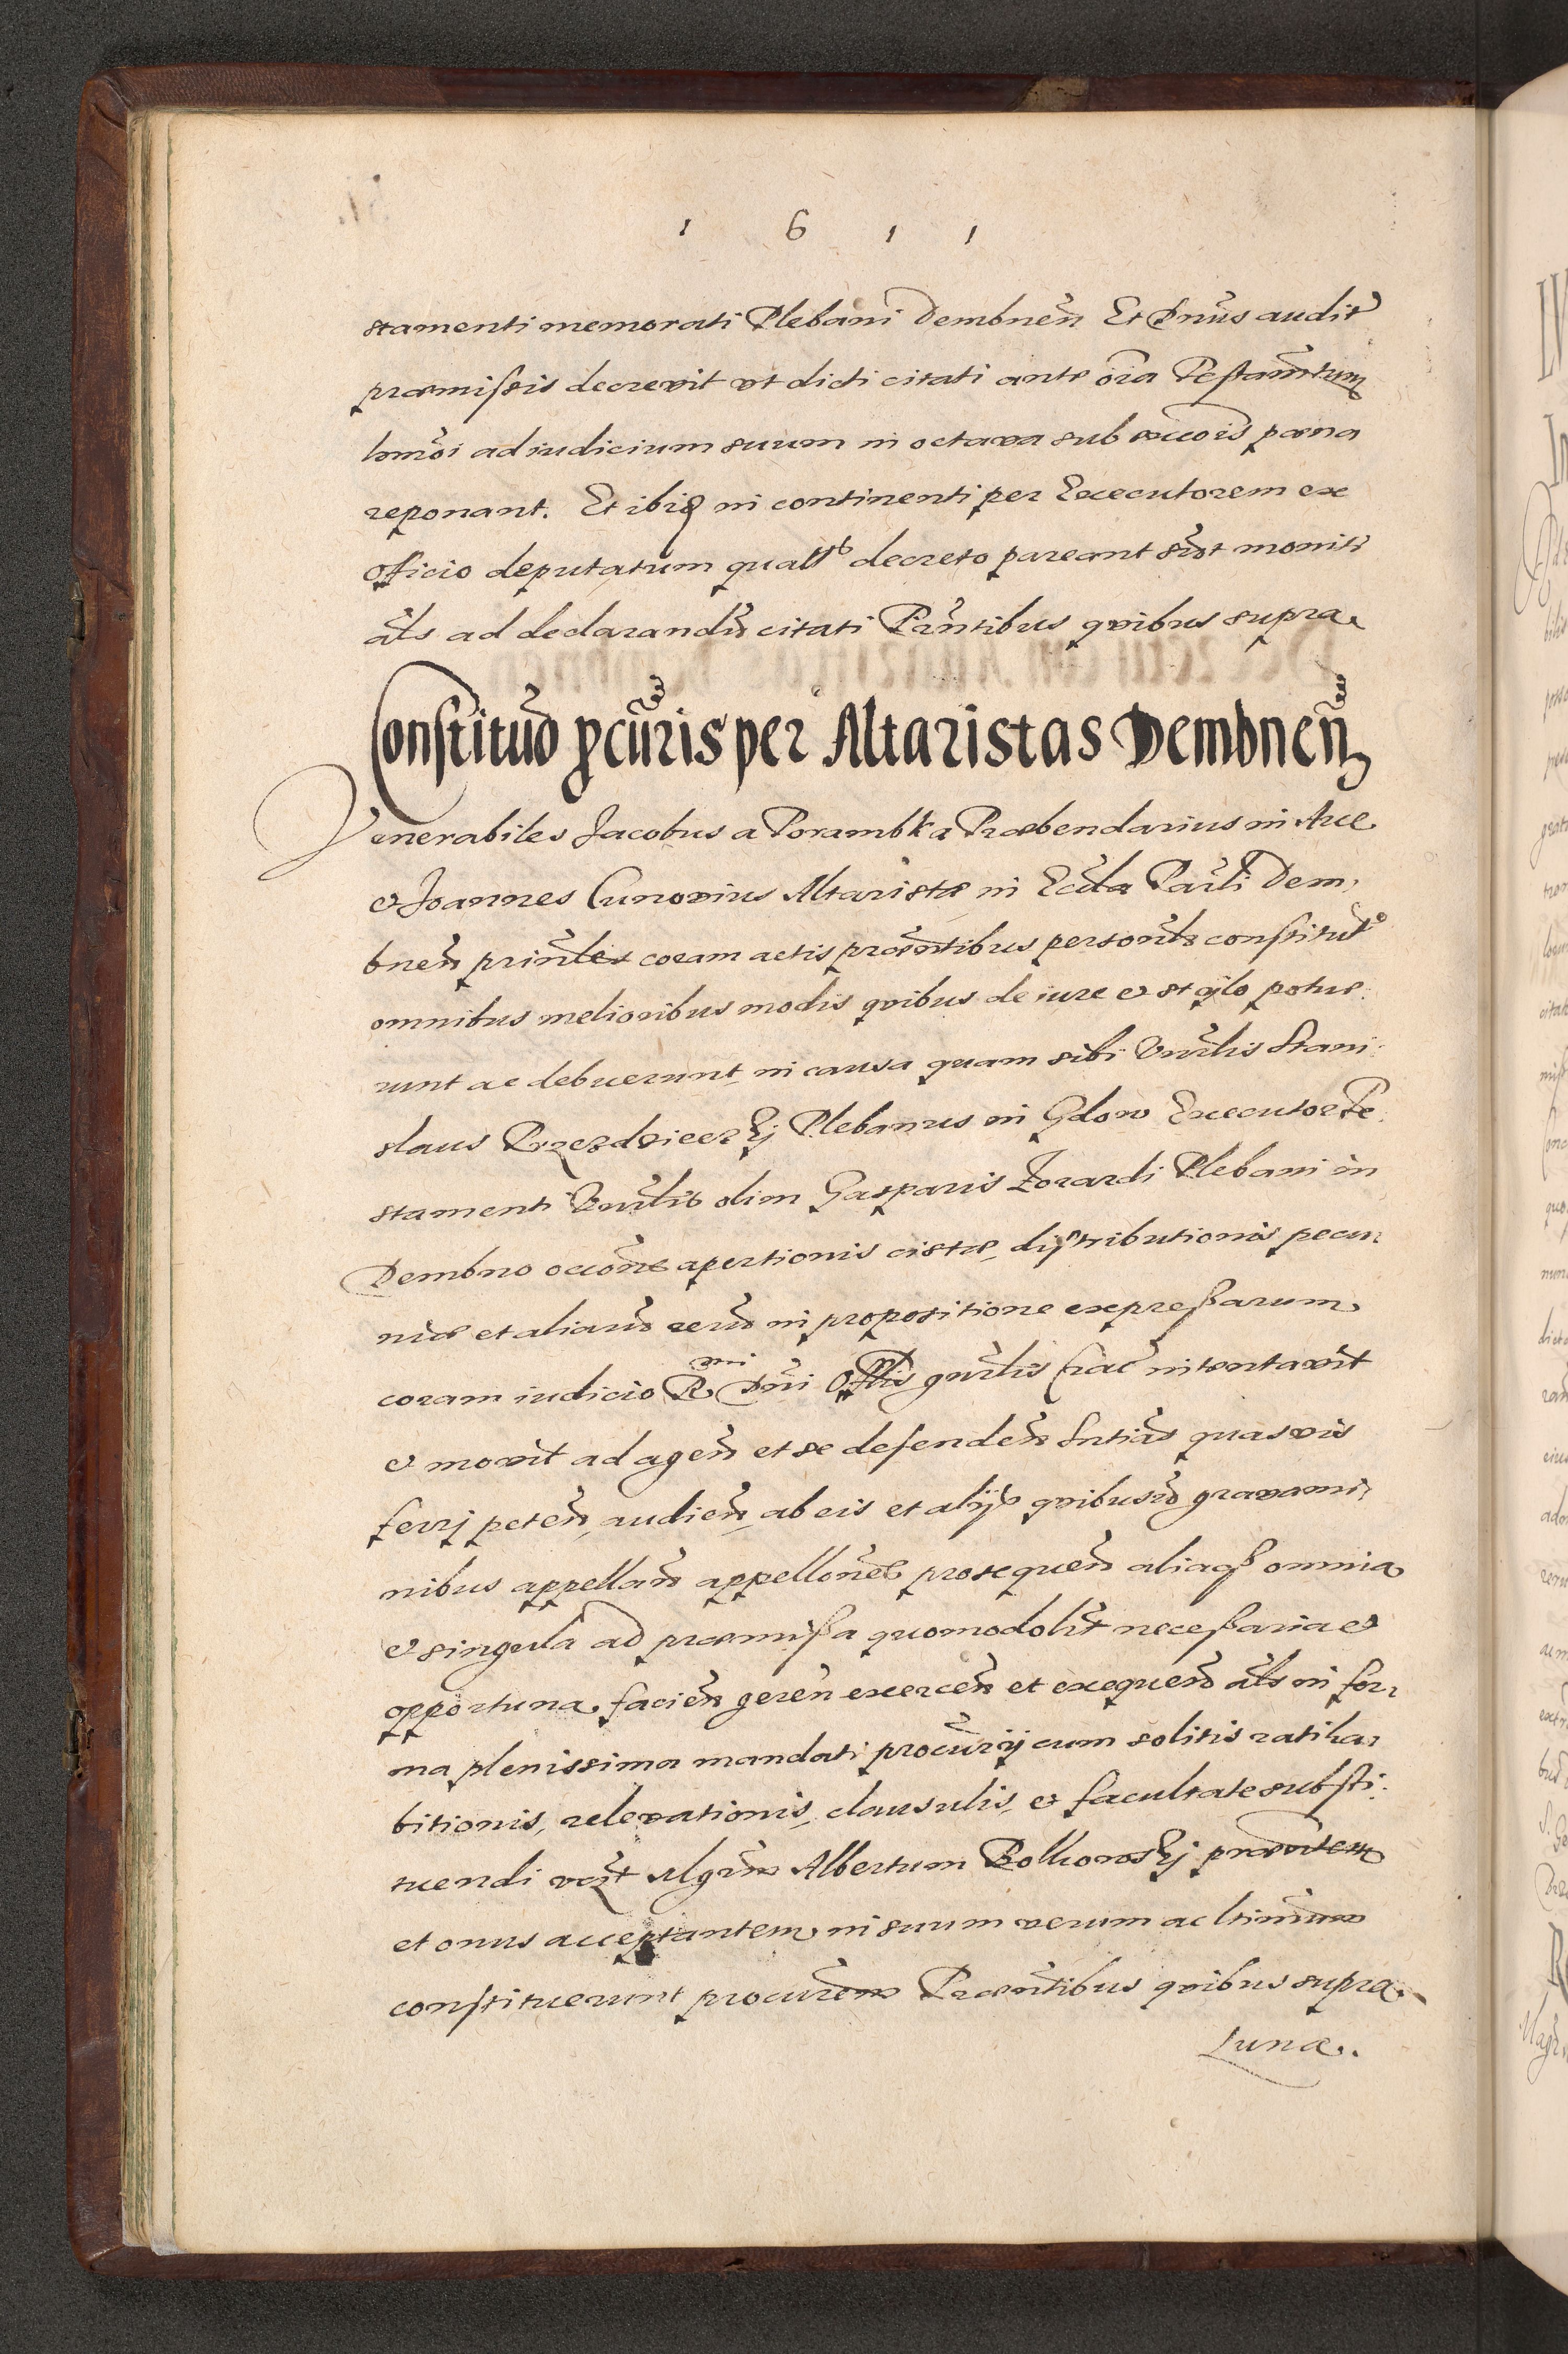 1 6 1 1
stamenti memorati Plebani Dembneñ Et Dnus audit
præmissis decrevit vt dicti citati ante oia Testamtum
ad iudicium suum in octava sub excois pæna
reponant. Et ibiq in continenti per Executorem ex
officio deputatum decreto pareant sunt moniti
als ad declarandu citati Pntibus quibus supra
Constitutio pcuris per Altaristas Dembneñ
Venerabiles Jacobus a Porambka Præbendarius in Arce
et Joannes Cunovius Altaristæ in Eccla Parli Dem,
bneñ prinles coram actis præntibus personlr constituti
omnibus melioribus modis quibus de iure et stylo potue:
runt ac debuerunt in causa quam sibi Vnrlis Stani:
slaus Przezdzieczkj Plebanus in Gdow Executor Te:
stamenti Vnrlis olim Gasparis Zorardi Plebani in
Dembno occone apertionis cistæ, distributionis pecu,
niæ et aliaru reru in propositione expressarum
coram iudicio Rmi Dni Offlis gnrlis Crac intentavit
et movit ad ageñ et se defendeñ Sntias quasvis
ferrj peteñ, audieñ, ab eis et alijs quibusvis gravami,
nibus appellañ appellones prosequeñ aliaqz omnia
et singula ad præmissa quomodolibt necessaria et
opportuna facieñ gereñ exerceñ et exequeñ als in for,
ma plenissima mandati procurij cum solitis ratiha,
bitionis, relevationis, clausulis, et facultate substi:
tuendi Mgrm Albertum Bolkowskj præntem
et onus acceptantem in suum verum ac ltimum
constituerunt procurem Præntibus quibus supra.
Lunæ..